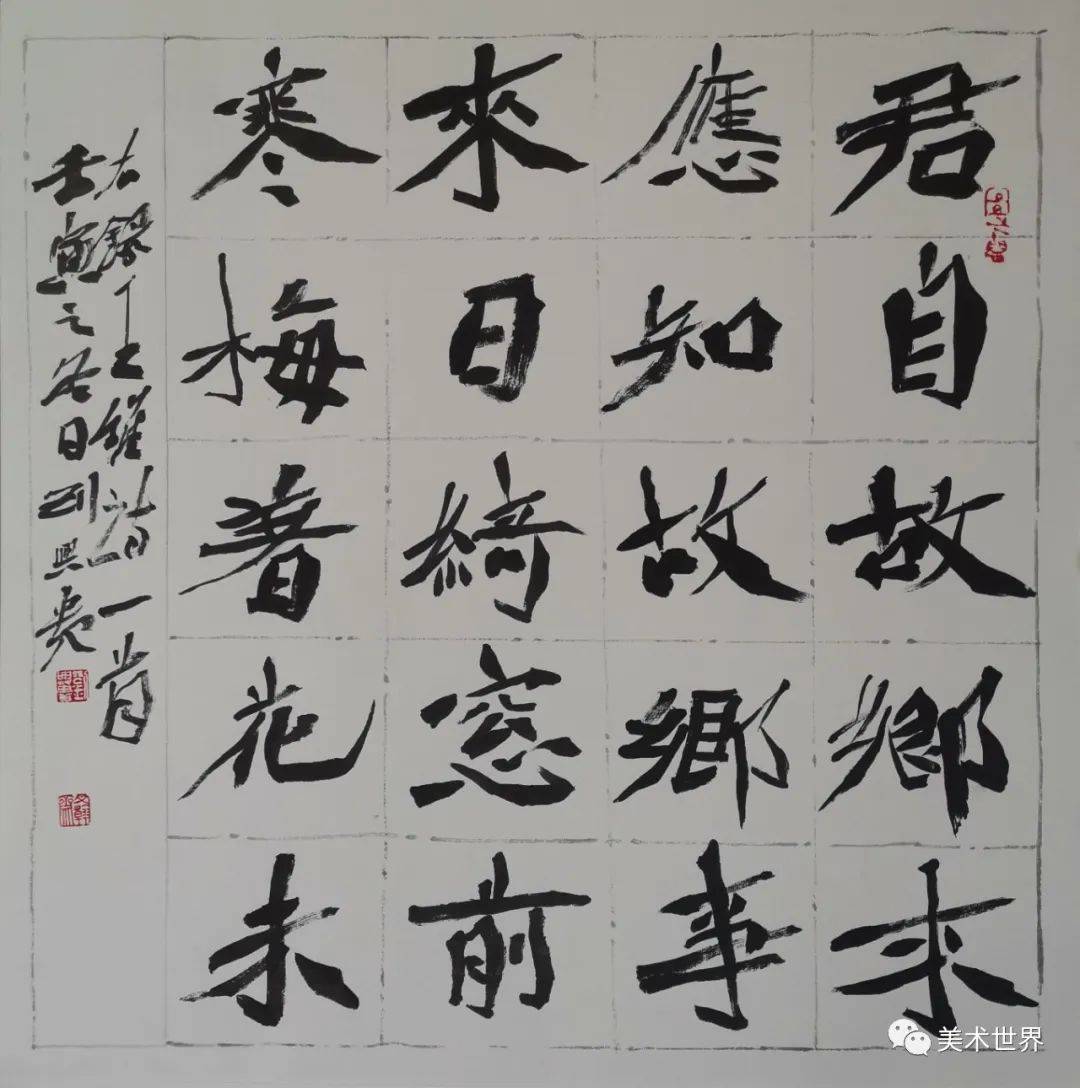 君自故鄉来
應知故鄉事
來日綺窓前
寒梅著花未
右錄王維詩一首
壬寅之冬日劉
美术世界